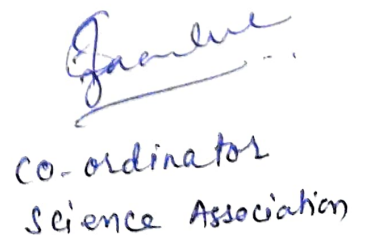 Co-ordinator
Science Association